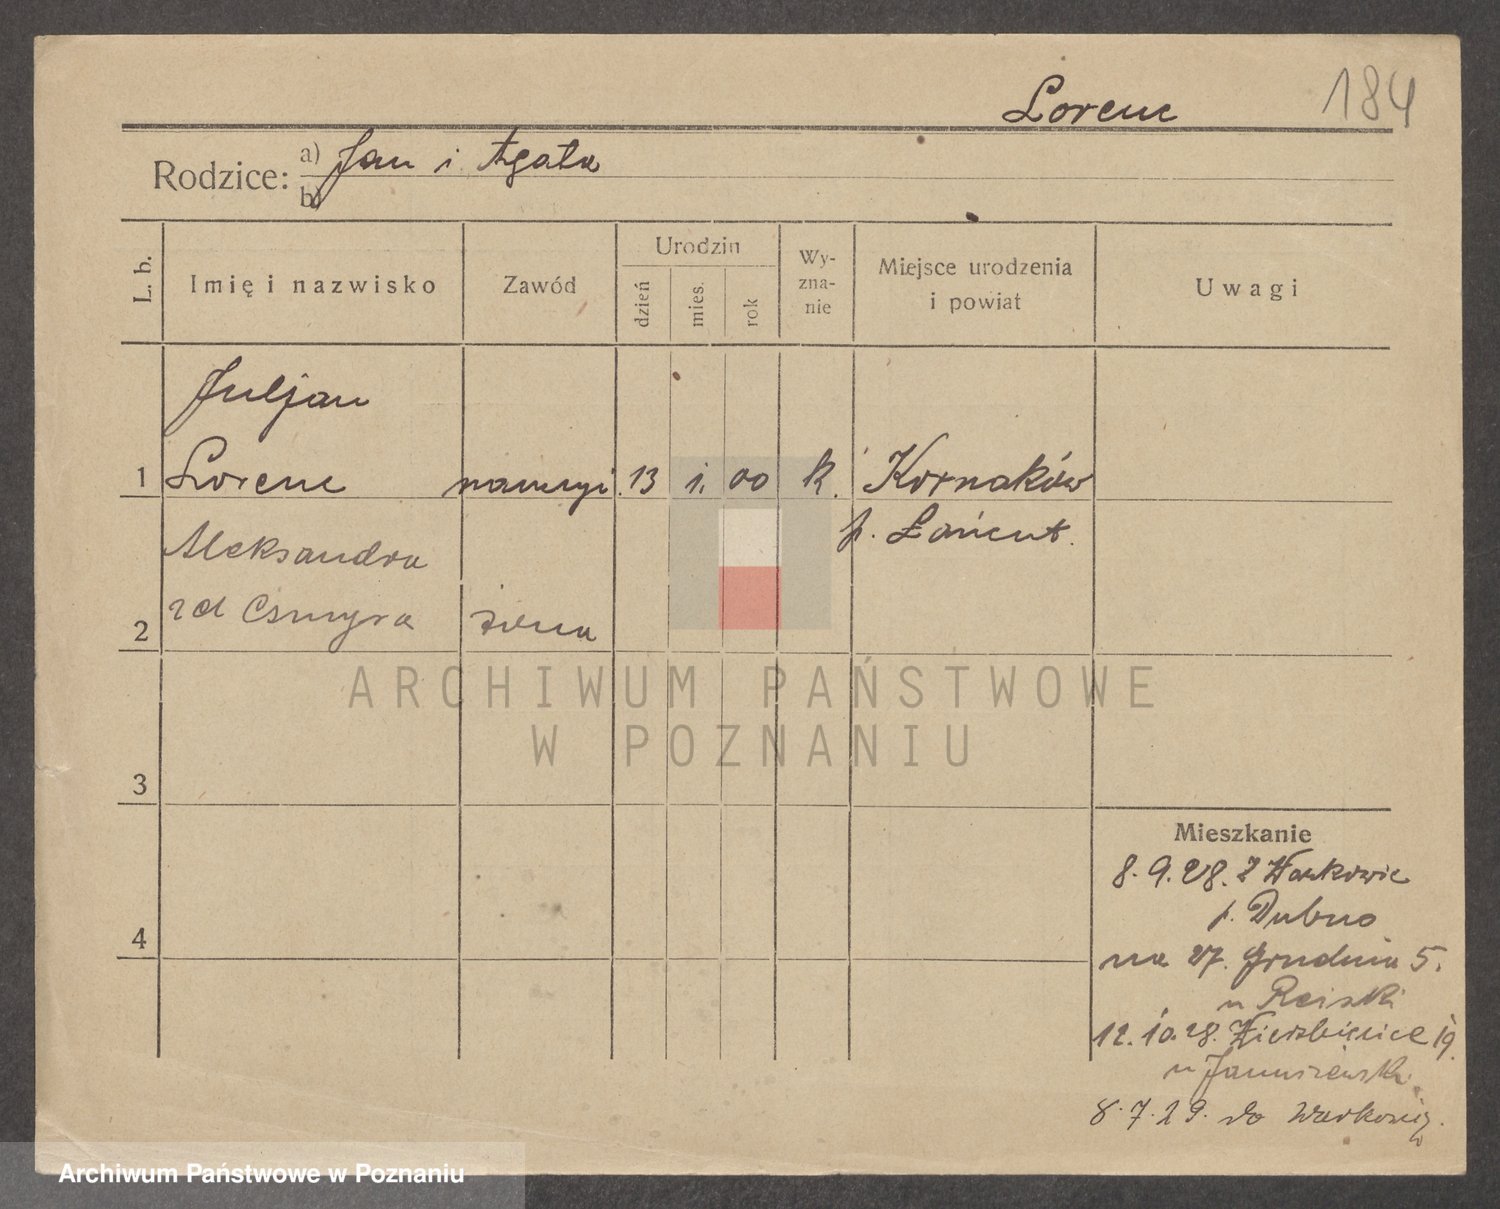 184
Lorenc
Rodzice: a) Jan i Agata
b)
L. b.
Imię i nazwisko
Zawód
Urodzin
dzień
mies.
rok
Wy-
zna-
nie
Miejsce urodzenia
i powiat
Uwagi
Juljan
1 Lorenc 13 1. 00 k. Kornaków
p. Łańcut.
Aleksandra
2 zd żona
3
4
ARCHIWUM PAŃSTWOWE
W POZNANIU
Mieszkanie
8.9.28. z Warkowic
p. Dubno
na 27. Grudnia 5.
u Reiski
12.10.28. Wierzbięcice 19.
u Januszewski
8.7.29. do Warkowicz
Archiwum Państwowe w Poznaniu